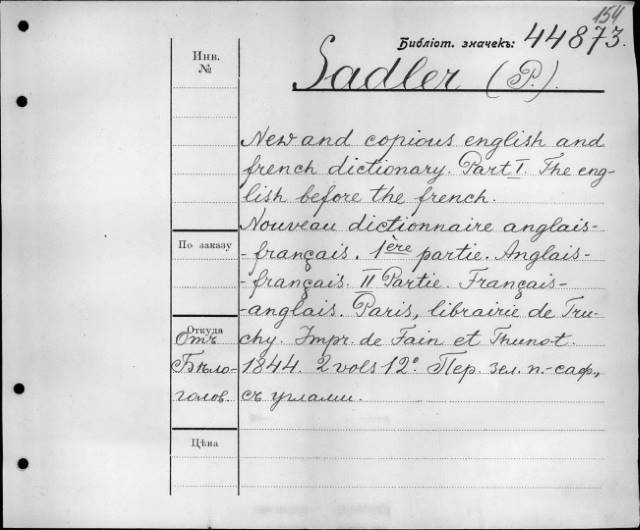 154
Библіот. значекъ: 44873.
Инв.
№
Sadler (P.).
New and copious english and
french dictionary. Part I. The eng-
lish before the french.
Nouveau dictionnaire anglais-
По заказу
-français. 1ère partie. Anglais-
-français. II Partie. Français-
-anglais. Paris, librairie de Tru-
Откуда
Отъ
chy. Impr. de Fain et Thunot.
Бѣло-
1844. 2 vols 12°. Пер. зел. п.-саф.,
голов.
съ углами.
Цѣна